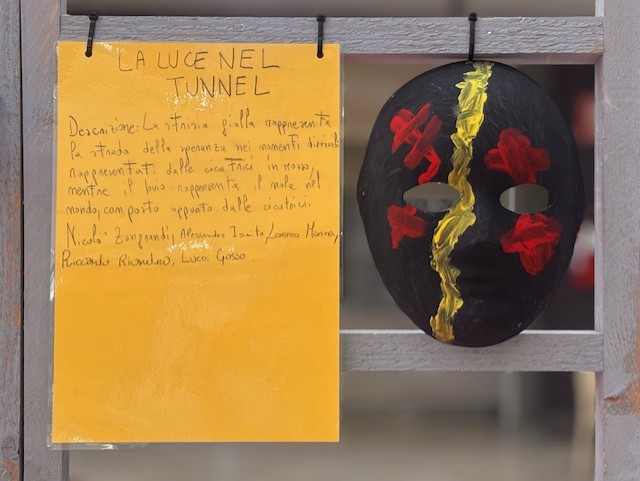 LA LUCE NEL
TUNNEL
Descrizione: La striscia gialla rappresenta
la strada della speranza nei momenti difficili
rappresentati dalle cicatrici in rosso,
mentre il buio rappresenta il male nel
mondo, composto appunto dalle cicatrici.
Nicolò Alessandro Lorenzo
Riccardo Luca Gosso